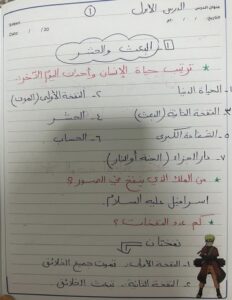 الدرس الأول
①
Date / / 20
١- البعث والحشر
* ترتيب حياة الإنسان وأحداث اليوم الآخر.
١- الحياة الدنيا ٢- النفخة الأولى (الموت)
٣- النفخة الثانية (البعث) ٤- الحشر
٥- الشفاعة الكبرى ٦- الحساب
٧- دار الجزاء (الجنة أو النار)
* من الملك الذي ينفخ في الصور؟
إسرافيل عليه السلام.
* كم عدد النفخات؟
نفختان
١- النفخة الأولى: تموت جميع الخلائق
٢- النفخة الثانية: تبعث الخلائق